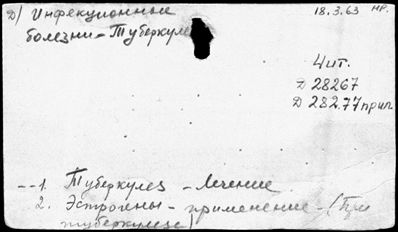 Д) Инфекционные
18.3.63 нр.
болезни - Туберкулез
Чит.
Д 28267
Д 28277 прил
--1. Туберкулез - Лечение
2. Эстрогены - применение - (При
туберкулезе)